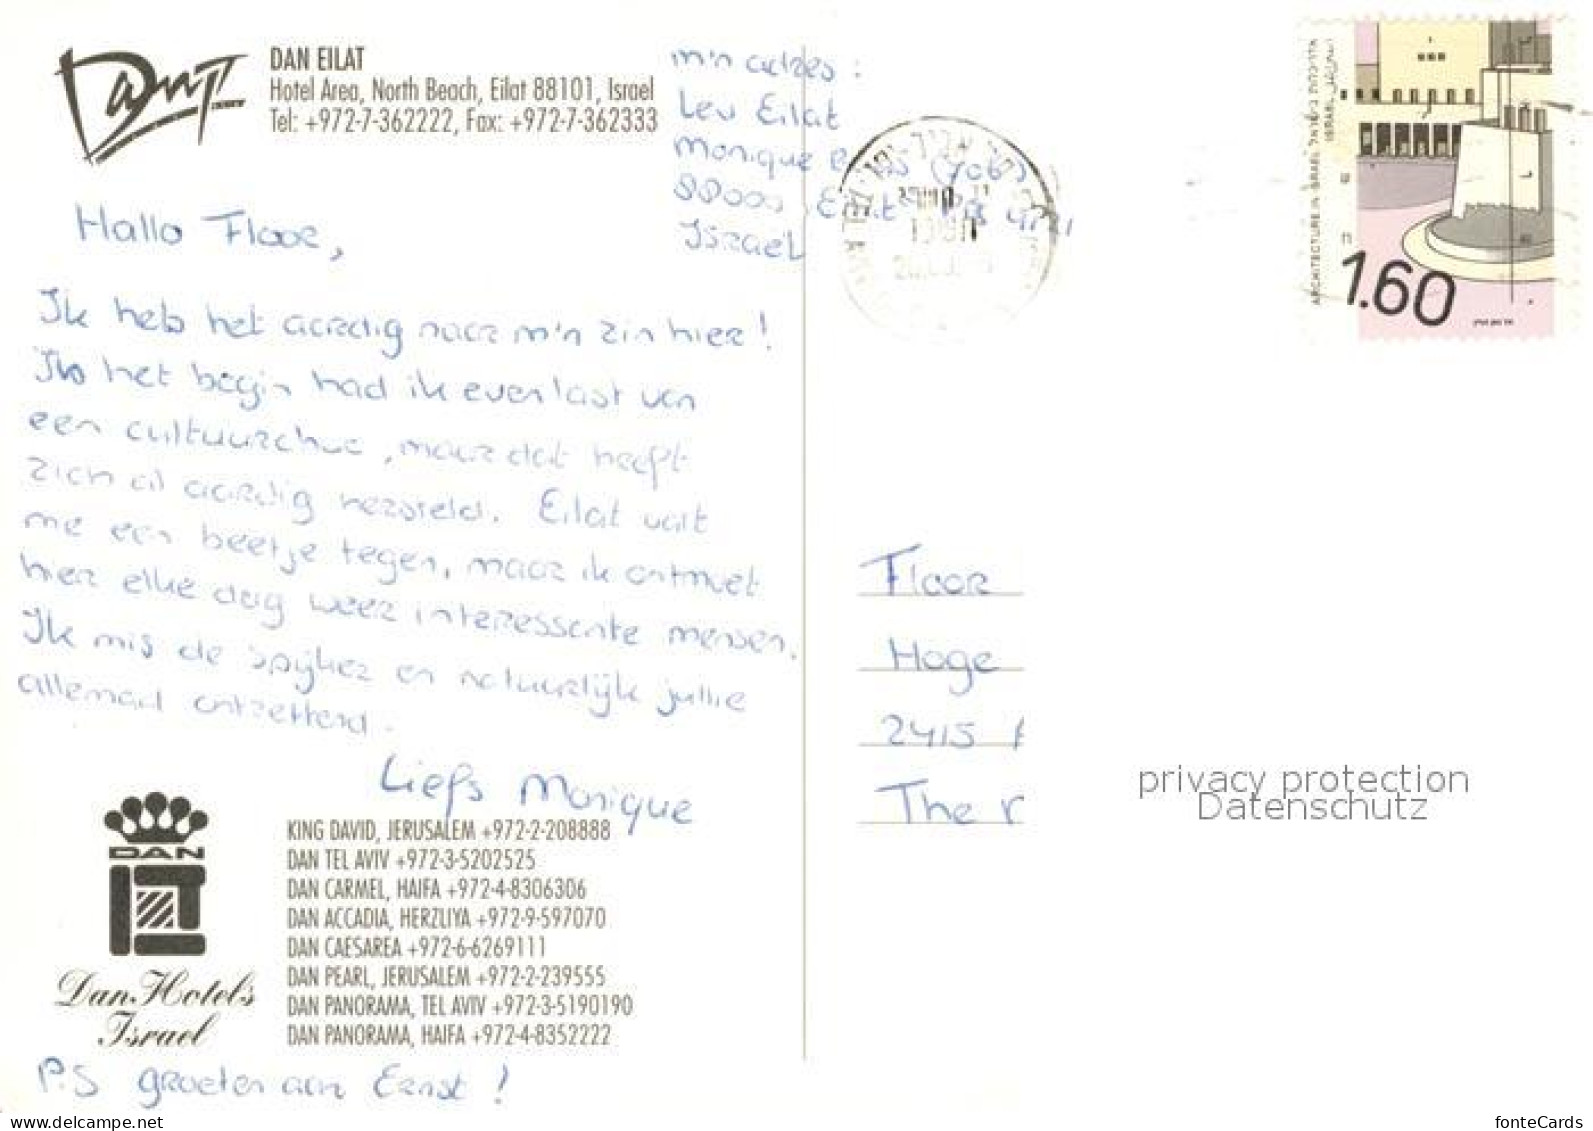 Dan
DAN EILAT
Hotel Area, North Beach, Eilat 88101, Israel
Tel: +972-7-362222, Fax: +972-7-362333
m'n adres :
Lev Eilat
Monique
88000 Eilat
Israel
ARCHITECTURE IN ISRAEL
ISRAEL
1.60
Hallo Floor,
Ik heb het aardig naar m'n zin hier!
In het begin had ik even last van
een cultuurchoc, maar dat heeft
zich al aardig hersteld. Eilat valt
me een beetje tegen, maar ik ontmoet
hier elke dag weer interessante mensen.
Ik mis de spijker en natuurlijk jullie
allemaal ontzettend.
Liefs Monique
Floor
Hoge
2415
The
privacy protection
Datenschutz
DAN
Dan Hotels
Israel
KING DAVID, JERUSALEM +972-2-208888
DAN TEL AVIV +972-3-5202525
DAN CARMEL, HAIFA +972-4-8306306
DAN ACCADIA, HERZLIYA +972-9-597070
DAN CAESAREA +972-6-6269111
DAN PEARL, JERUSALEM +972-2-239555
DAN PANORAMA, TEL AVIV +972-3-5190190
DAN PANORAMA, HAIFA +972-4-8352222
P.S groeten aan Ernst!
www.delcampe.net
fonteCards